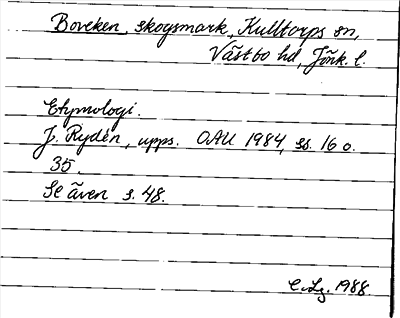 Boveken, skogsmark, Kulltorps sn,
Västbo hd, Jönk. l.
Etymologi.
J. Rydén, upps. OAU 1984, ss. 16 o.
35.
Se även s. 48.
C. Lg. 1988